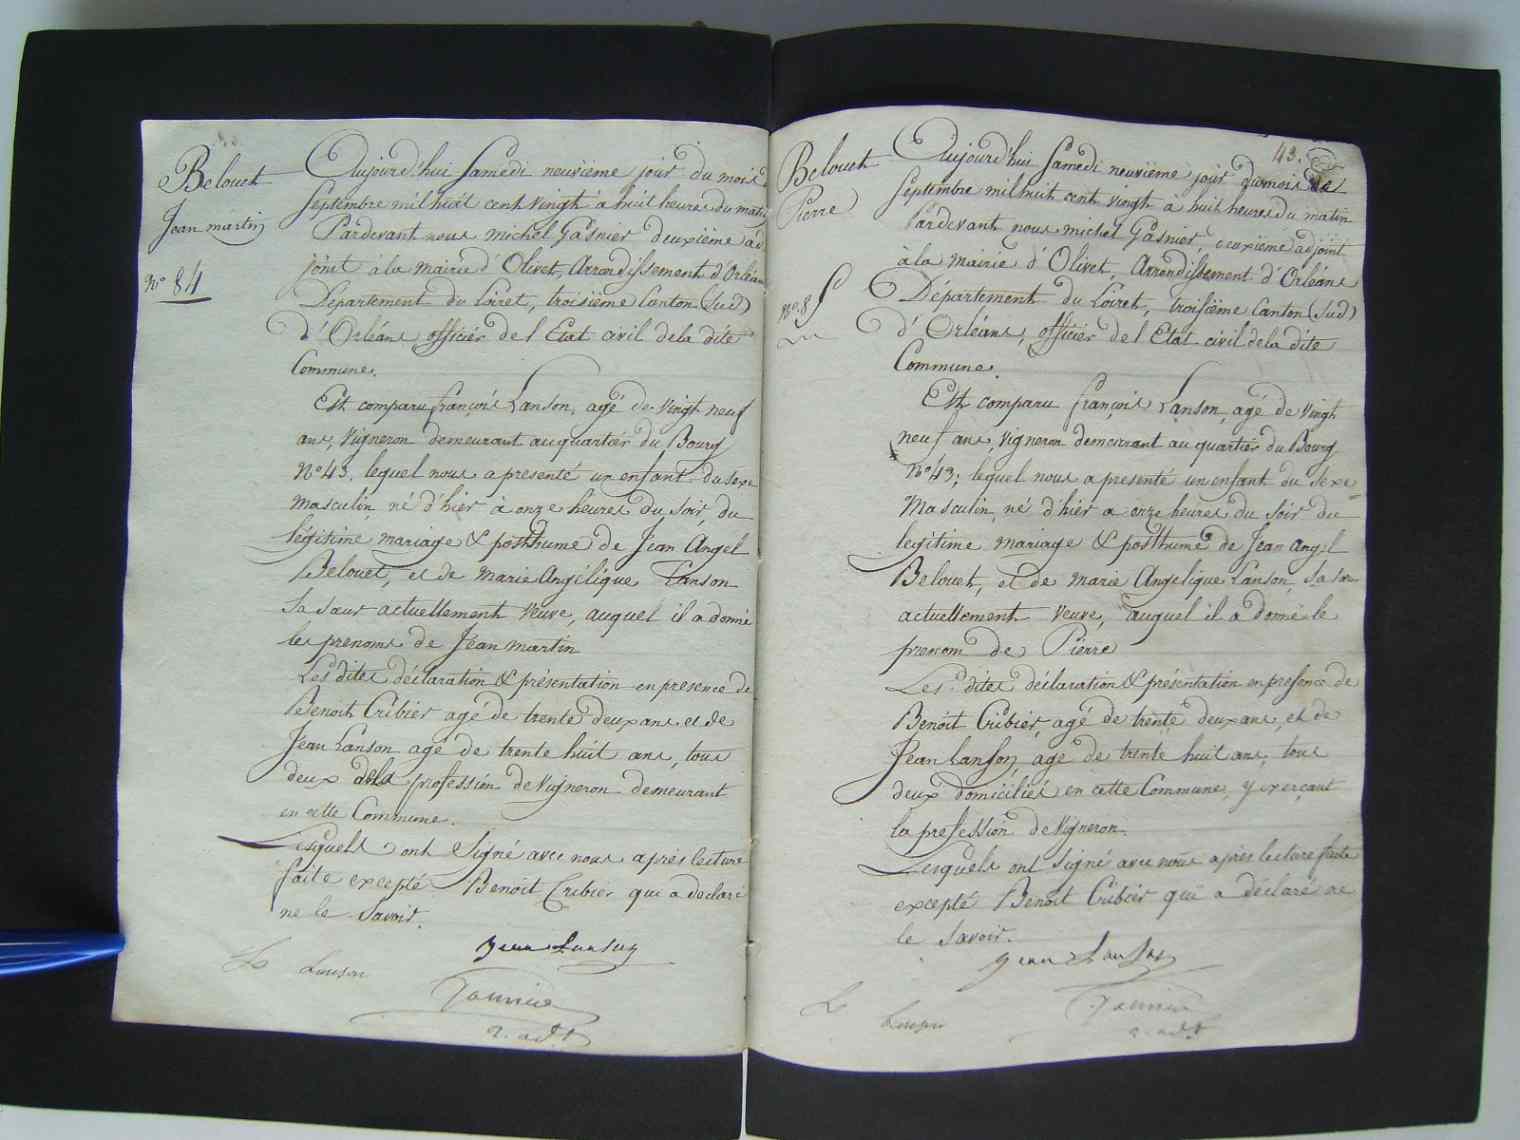 Belouet
Jean martin
N° 84
Aujourd'hui Samedi neuvième jour du mois
Septembre mil huit cent vingt à huit heures du matin
Pardevant nous michel Gasnier deuxième ad
joint à la mairie d'Olivet, Arrondissement d'Orléans
Département du Loiret, troisième Canton (Sud)
d'Orléans officier de l'Etat civil de la dite
Commune.
Est comparu françois Lanson, agé de vingt neuf
ans, vigneron demeurant au quartier du Bourg
N° 43. lequel nous a presenté un enfant du sexe
Masculin, né d'hier à onze heures du soir, du
légitime mariage & posthume de Jean Angel
Belouet, et de Marie Angélique Lanson
Sa sœur actuellement veuve, auquel il a donné
les prenoms de Jean martin
Les dites déclaration & présentation en presence de
Benoit Cribier agé de trente deux ans et de
Jean Lanson agé de trente huit ans, tous
deux de la profession de vigneron demeurant
en cette Commune.
Lesquels ont Signé avec nous après lecture
faite excepté Benoit Cribier qui a declaré
ne le Savoir.
Jean Lanson
Lanson
2. adjt
43.
Belouet
Pierre
N° 85
Aujourd'hui Samedi neuvième jour du mois de
Septembre mil huit cent vingt à huit heures du matin
Pardevant nous michel Gasnier, deuxième adjoint
à la Mairie d'Olivet, Arrondissement d'Orléans
Département du Loiret, troisième Canton (Sud)
d'Orléans, officier de l'Etat civil de la dite
Commune.
Est comparu françois Lanson, agé de vingt
neuf ans, vigneron demeurant au quartier du Bourg
N° 43; lequel nous a presenté un enfant du sexe
Masculin, né d'hier a onze heures du soir du
legitime mariage & posthume de Jean Angel
Belouet, et de Marie Angelique Lanson, Sa sœur
actuellement veuve, auquel il a donné le
prenom de Pierre
Les dites déclaration & présentation en presence de
Benoit Cribier, agé de trente deux ans, et de
Jean Lanson, agé de trente huit ans, tous
deux domiciliés en cette Commune, y exerçant
la profession de Vigneron.
Lesquels ont signé avec nous après lecture faite
excepté Benoit Cribier qui a déclaré ne
le savoir.
Jean Lanson
Lanson
2. adjt